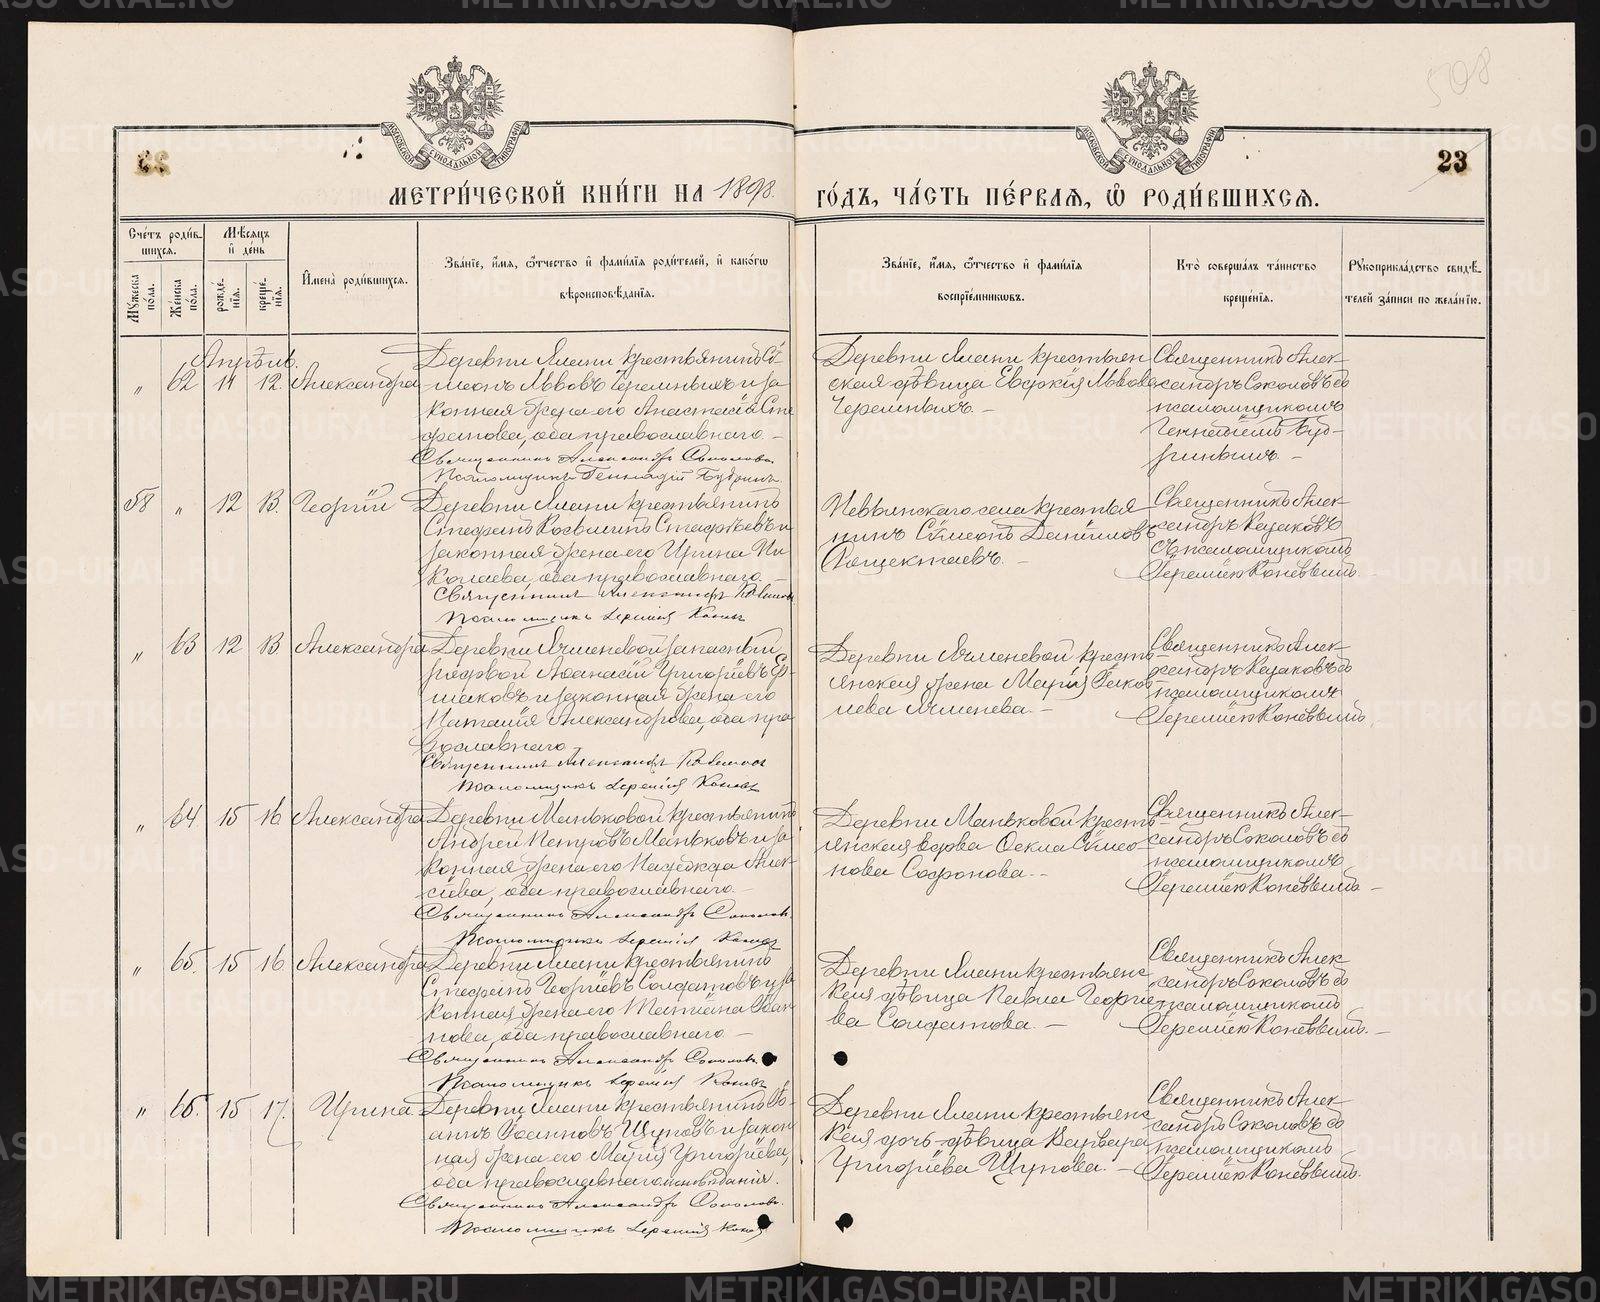 508
23
МЕТРИ́ЧЕСКОЙ КНИ́ГИ НА 1898 ГО́ДЪ, ЧА́СТЬ ПЕ́РВАЯ, Ѽ РОДИ́ВШИХСЯ.
Сче́тъ роди́в-
шихся.
Мꙋ́жеска по́ла.
Же́нска по́ла.
Мѣ́сяцъ
и҆ де́нь
рожде́-
нїя.
креще́-
нїя.
И҆мена̀ роди́вшихся.
Зва́нїе, и҆́мя, ѻ҆́тчество и҆ фами́лїя роди́телей, и҆ како́гѡ
вѣроисповѣ́данїя.
Зва́нїе, и҆́мя, ѻ҆́тчество и҆ фами́лїя
воспрїе́мникѡвъ.
Кто̀ соверша́лъ та́инство
креще́нїя.
Рꙋкоприкла́дство свидѣ́-
телей за́писи по жела́нїю.
Апрѣль.
" 62 11 12. Александра
Деревни Ялани крестьянинъ Сѵ-
меонъ Львовъ Черемныхъ и за
конная жена его Анастасія Сте
фанова, оба православнаго. -
Священникъ Александръ Соколовъ
Псаломщикъ Геннадій Будринъ
Деревни Ялани крестьян
ская дѣвица Евдокія Львова
Черемныхъ. -
Священникъ Алек-
сандръ Соколовъ съ
псаломщикомъ
Геннадіемъ Буд-
ринымъ. -
58 " 12 13. Георгій
Деревни Ялани крестьянинъ
Стефанъ
законная жена его Ирина Ни
колаева, оба православнаго. -
Священникъ Александръ Казаковъ
Псаломщикъ Іеремія Коневъ
Невьинскаго села крестья
нинъ Сѵмеонъ Даніиловъ
Священникъ Алек-
сандръ Казаковъ
съ псаломщикомъ
Іереміею Коневымъ.
" 63 12 13 Александра
Деревни Ячменевой запасный
рядовой Аѳанасій Григоріевъ Ер-
маковъ и законная жена его
Наталія Александрова, оба пра
вославнаго. -
Священникъ Александръ Казаковъ
Псаломщикъ Іеремія Коневъ
Деревни Ячменевой кресть
янская жена Марія
лева Ячменева. -
Священникъ Алек-
сандръ Казаковъ съ
псаломщикомъ
Іереміею Коневымъ.
" 64 15 16 Александра
Деревни Маньковой крестьянинъ
Андрей Петровъ Маньковъ и за
конная жена его Надежда Алек-
сіева, оба православнаго. -
Священникъ Александръ Соколовъ
Псаломщикъ Іеремія Коневъ
Деревни Маньковой кресть
янская вдова Ѳекла Сѵмео
нова Софонова. -
Священникъ Алек-
сандръ Соколовъ съ
псаломщикомъ
Іереміею Коневымъ. -
" 65. 15 16 Александра
Деревни Ялани крестьянинъ
Стефанъ Георгіевъ Солдатовъ и за
конная жена его Татіана
нова, оба православнаго. -
Священникъ Александръ Соколовъ
Псаломщикъ Іеремія Коневъ
Деревни Ялани крестьянс
кая дѣвица Георгіе
ва Солдатова. -
Священникъ Алек
сандръ Соколовъ съ
псаломщикомъ
Іереміею Коневымъ. -
" 66. 15 17. Ирина
Деревни Ялани крестьянинъ Іо-
аннъ Іоанновъ Щуповъ и закон
ная жена его Марія Григоріева,
оба православнаго исповѣданія.
Священникъ Александръ Соколовъ
Псаломщикъ Іеремія Коневъ
Деревни Ялани крестьянс
кая дочь-дѣвица Варвара
Григоріева Щупова. -
Священникъ Алек-
сандръ Соколовъ съ
псаломщикомъ
Іереміею Коневымъ.
METRIKI.GASO-URAL.RU